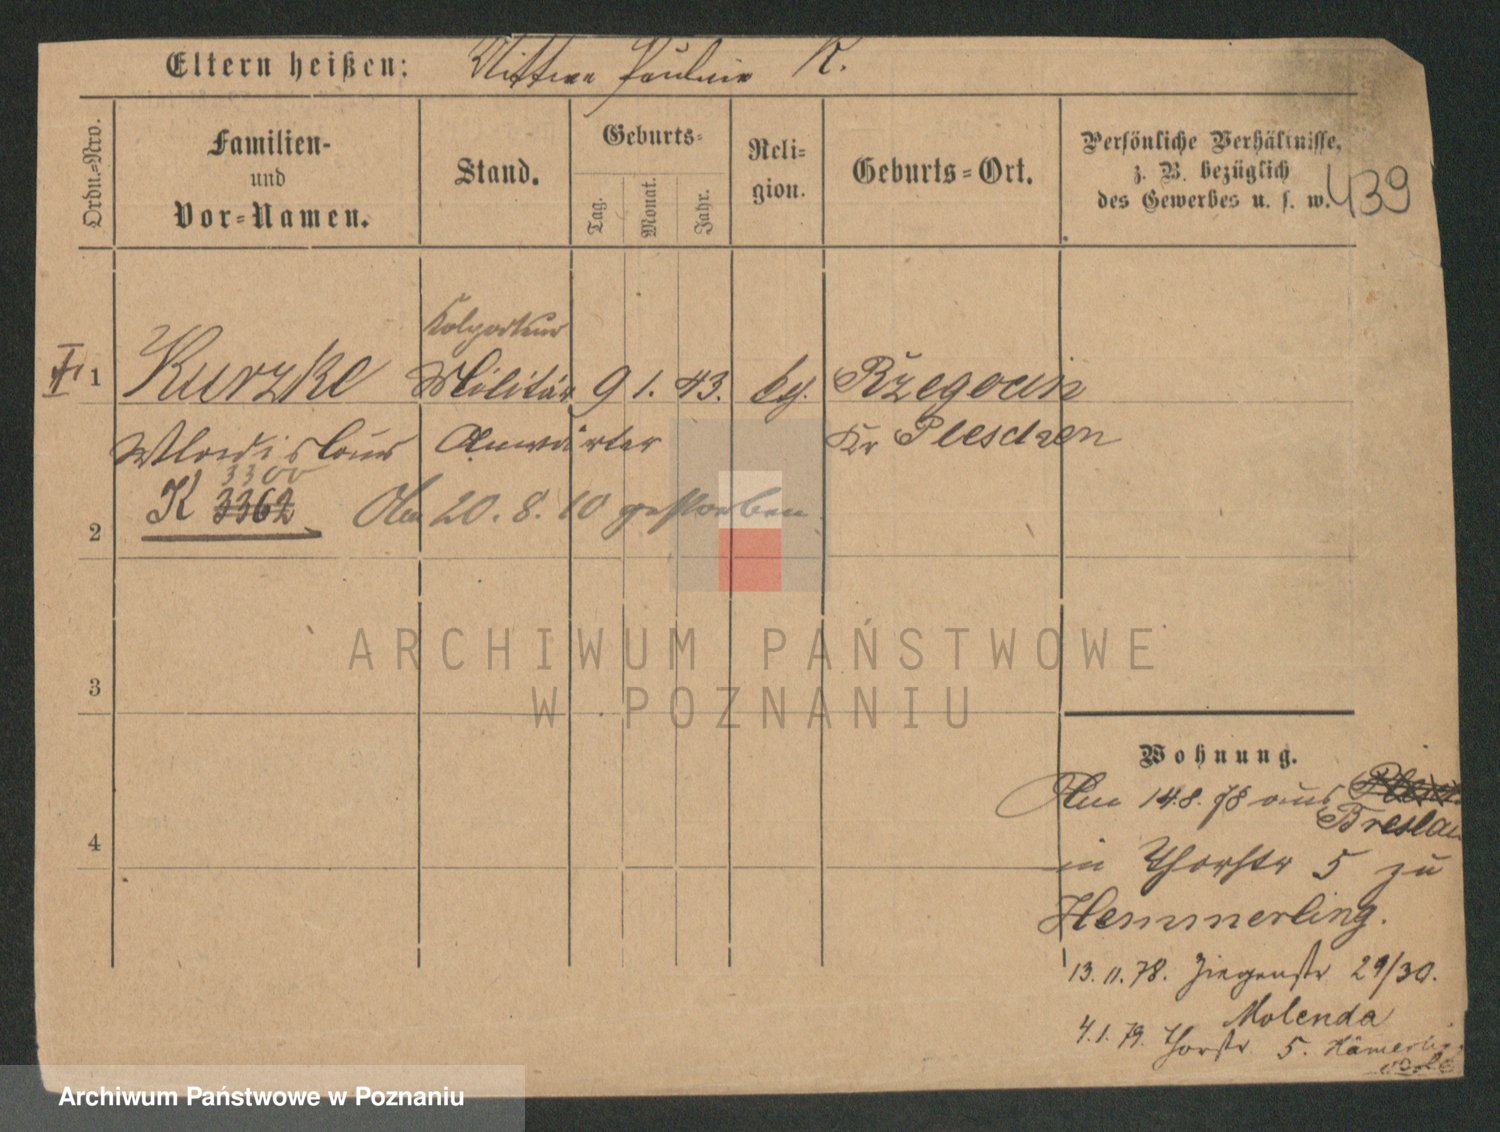 Eltern heißen: Wittwe Pauline K.
Ordn.=Nro.
Familien-
und
Vor=Namen.
Stand.
Geburts=
Tag.
Monat.
Jahr.
Reli=
gion.
Geburts=Ort.
Persönliche Verhältnisse,
z. B. bezüglich
des Gewerbes u. s. w.
439
Kolporteur
1 Kurzke Militär 9 1. 43. kg. Rzegocin
Wladislaus Anwärter Kr Pleschen
3300
K 3362 Am 20. 8. 10 gestorben
2
3
4
ARCHIWUM PAŃSTWOWE
W POZNANIU
Wohnung.
Am 14.8.78 aus
Breslau
in Thorstr 5 zu
Hemmerling.
13.11.78. Ziegenstr 29/30.
Molenda
4.1.79. Thorstr 5.
Archiwum Państwowe w Poznaniu